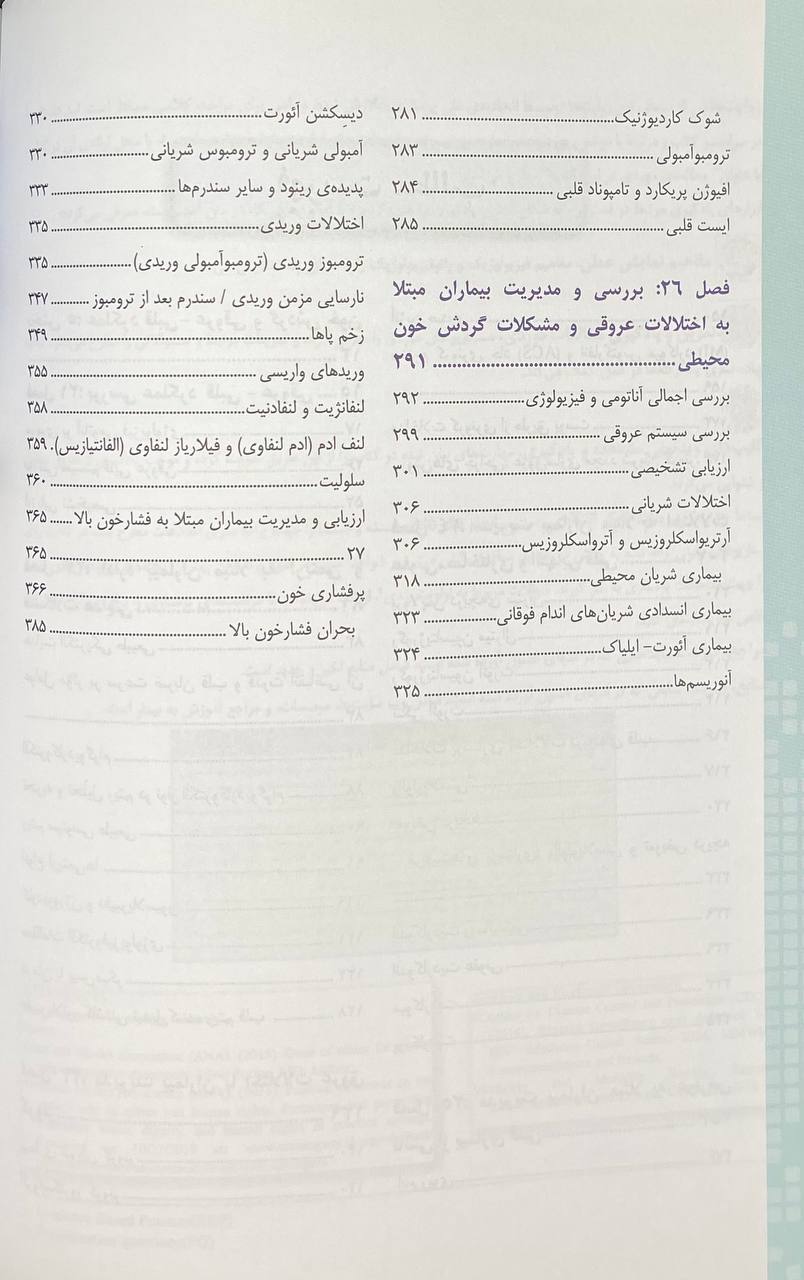 شوک کاردیوژنیک ................ ۲۸۱
ترومبوآمبولی ................ ۲۸۳
افیوژن پریکارد و تامپوناد قلبی ................ ۲۸۴
ایست قلبی ................ ۲۸۵
فصل ۲۶: بررسی و مدیریت بیماران مبتلا
به اختلالات عروقی و مشکلات گردش خون
محیطی ................ ۲۹۱
بررسی اجمالی آناتومی و فیزیولوژی ................ ۲۹۲
بررسی سیستم عروقی ................ ۲۹۹
ارزیابی تشخیصی ................ ۳۰۱
اختلالات شریانی ................ ۳۰۶
آرتریواسکلروزیس و آترواسکلروزیس ................ ۳۰۶
بیماری شریان محیطی ................ ۳۱۸
بیماری انسدادی شریان‌های اندام فوقانی ................ ۳۲۳
بیماری آئورت- ایلیاک ................ ۳۲۴
آنوریسم‌ها ................ ۳۲۵
دیسِکشن آئورت ................ ۳۳۰
آمبولی شریانی و ترومبوس شریانی ................ ۳۳۰
پدیده‌ی رینود و سایر سندرم‌ها ................ ۳۳۳
اختلالات وریدی ................ ۳۳۵
ترومبوز وریدی (ترومبوآمبولی وریدی) ................ ۳۳۵
نارسایی مزمن وریدی / سندرم بعد از ترومبوز ............ ۳۴۷
زخم پاها ................ ۳۴۹
وریدهای واریسی ................ ۳۵۵
لنفانژیت و لنفادنیت ................ ۳۵۸
لنف ادم (ادم لنفاوی) و فیلاریاز لنفاوی (الفانتیازیس). ۳۵۹
سلولیت ................ ۳۶۰
ارزیابی و مدیریت بیماران مبتلا به فشارخون بالا ....... ۳۶۵
۲۷ ................ ۳۶۵
پرفشاری خون ................ ۳۶۶
بحران فشارخون بالا ................ ۳۸۵